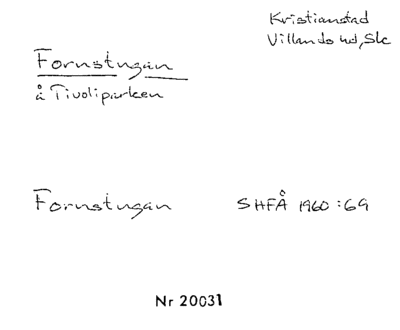 Kristianstad
Villands hd, Sk
Fornstugan
å Tivoliparken
Fornstugan SHFÅ 1960:69
Nr 20031